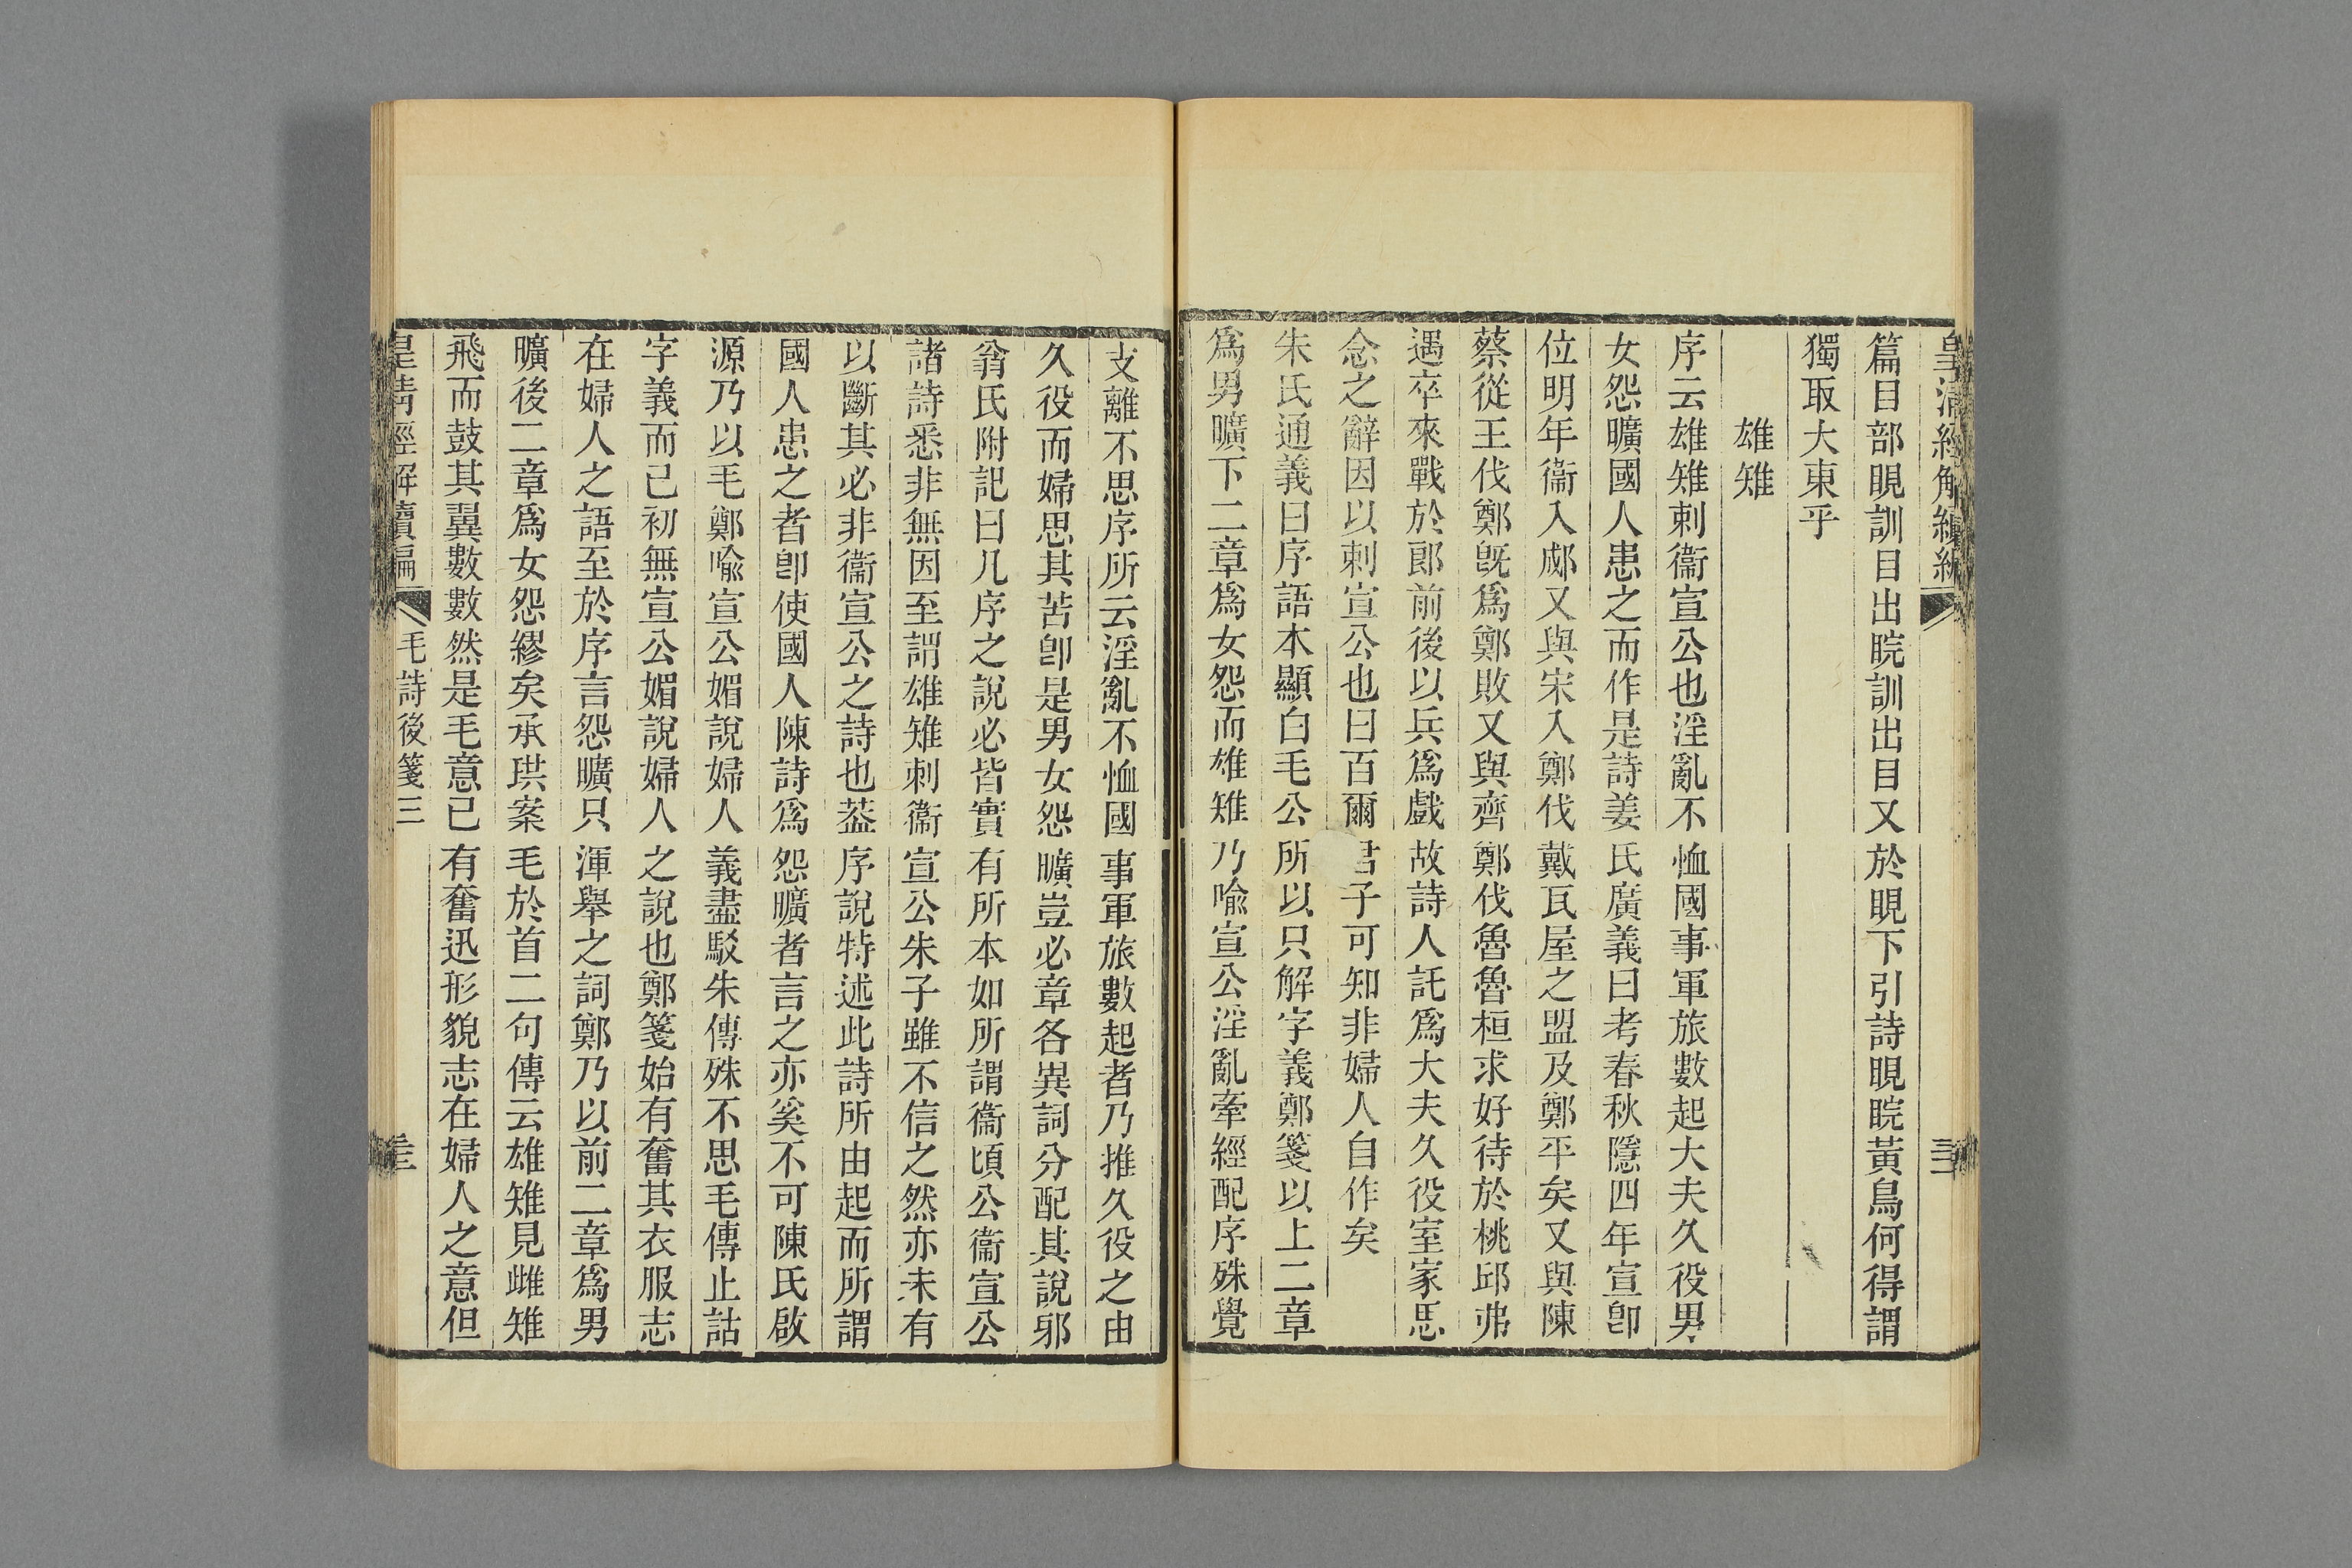 皇清經解續編
篇目部睍訓目出睆訓出目又於睍下引詩睍睆黃鳥何得謂
獨取大東乎
雄雉
序云雄雉刺衞宣公也淫亂不恤國事軍旅數起大夫久役男
女怨曠國人患之而作是詩姜氏廣義曰考春秋隱四年宣卽
位明年衞入郕又與宋入鄭伐戴瓦屋之盟及鄭平矣又與陳
蔡從王伐鄭旣爲鄭敗又與齊鄭伐魯魯桓求好待於桃邱弗
遇卒來戰於郎前後以兵爲戲故詩人託爲大夫久役室家思
念之辭因以刺宣公也曰百爾君子可知非婦人自作矣
朱氏通義曰序語本顯白毛公所以只解字義鄭箋以上二章
爲男曠下二章爲女怨而雄雉乃喩宣公淫亂牽經配序殊覺
支離不思序所云淫亂不恤國事軍旅數起者乃推久役之由
久役而婦思其苦卽是男女怨曠豈必章各異詞分配其說邪
翁氏附記曰凡序之說必皆實有所本如所謂衞頃公衞宣公
諸詩悉非無因至謂雄雉刺衞宣公朱子雖不信之然亦未有
以斷其必非衞宣公之詩也葢序說特述此詩所由起而所謂
國人患之者卽使國人陳詩爲怨曠者言之亦奚不可陳氏啟
源乃以毛鄭喩宣公媚說婦人義盡駁朱傳殊不思毛傳止詁
字義而已初無宣公媚說婦人之說也鄭箋始有奮其衣服志
在婦人之語至於序言怨曠只渾舉之詞鄭乃以前二章爲男
曠後二章爲女怨繆矣承珙案毛於首二句傳云雄雉見雌雉
飛而鼓其翼數數然是毛意已有奮迅形貌志在婦人之意但
皇清經解續編
毛詩後箋三